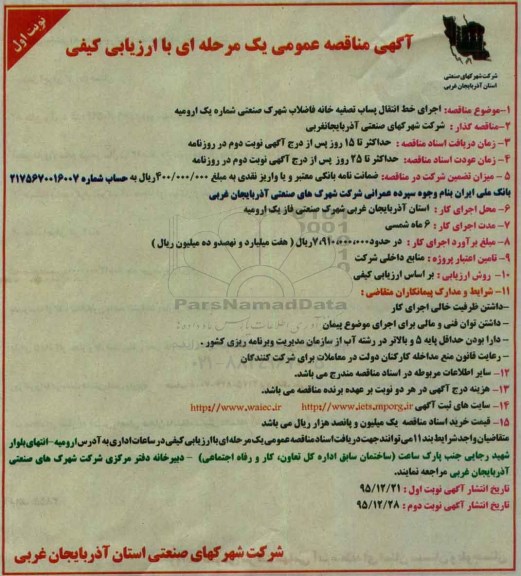 نوبت اول
آگهی مناقصه عمومی یک مرحله ای با ارزیابی کیفی
شرکت شهرکهای صنعتی
استان آذربایجان غربی
۱-موضوع مناقصه: اجرای خط انتقال پساب تصفیه خانه فاضلاب شهرک صنعتی شماره یک ارومیه
۲-مناقصه گذار : شرکت شهرکهای صنعتی آذربایجانغربی
۳- زمان دریافت اسناد مناقصه: حداکثر تا ۱۵ روز پس از درج آگهی نوبت دوم در روزنامه
۴- زمان عودت اسناد مناقصه: حداکثر تا ۲۵ روز پس از درج آگهی نوبت دوم در روزنامه
۵ - میزان تضمین شرکت در مناقصه: ضمانت نامه بانکی معتبر و یا واریز نقدی به مبلغ ۴۰۰/۰۰۰/۰۰۰ریال به حساب شماره ۲۱۷۵۶۷۰۰۱۶۰۰۷
بانک ملی ایران بنام وجوه سپرده عمرانی شرکت شهرک های صنعتی آذربایجان غربی
۶- محل اجرای کار : استان آذربایجان غربی شهرک صنعتی فاز یک ارومیه
۷- مدت اجرای کار : ۶ ماه شمسی
۸- مبلغ برآورد اجرای کار : در حدود۷،۹۱۰،۰۰۰،۰۰۰ریال ( هفت میلیارد و نهصدو ده میلیون ریال )
۹- تامین اعتبار پروژه : منابع داخلی شرکت
۱۰- روش ارزیابی : بر اساس ارزیابی کیفی
۱۱- شرایط و مدارک پیمانکاران متقاضی :
-داشتن ظرفیت خالی اجرای کار
- داشتن توان فنی و مالی برای اجرای موضوع پیمان
- دارا بودن حداقل پایه ۵ و بالاتر در رشته آب از سازمان مدیریت وبرنامه ریزی کشور .
- رعایت قانون منع مداخله کارکنان دولت در معاملات برای شرکت کنندگان
۱۲- سایر اطلاعات مربوطه در اسناد مناقصه مندرج می باشد.
۱۳- هزینه درج آگهی در هر دو نوبت بر عهده برنده مناقصه می باشد.
۱۴- سایت های ثبت آگهی http://www.iets.mporg.ir http://www.waiec.ir
۱۵- قیمت خرید اسناد مناقصه یک میلیون و پانصد هزار ریال می باشد
متقاضیان واجد شرایط بند ۱۱ می توانند جهت دریافت اسناد مناقصه عمومی یک مرحله ای با ارزیابی کیفی در ساعات اداری به آدرس ارومیه - انتهای بلوار
شهید رجایی جنب پارک ساعت (ساختمان سابق اداره کل تعاون، کار و رفاه اجتماعی) - دبیرخانه دفتر مرکزی شرکت شهرک های صنعتی
آذربایجان غربی مراجعه نمایند.
تاریخ انتشار آگهی نوبت اول : ۹۵/۱۲/۲۱
تاریخ انتشار آگهی نوبت دوم : ۹۵/۱۲/۲۸
شرکت شهرکهای صنعتی استان آذربایجان غربی
ParsNamadData